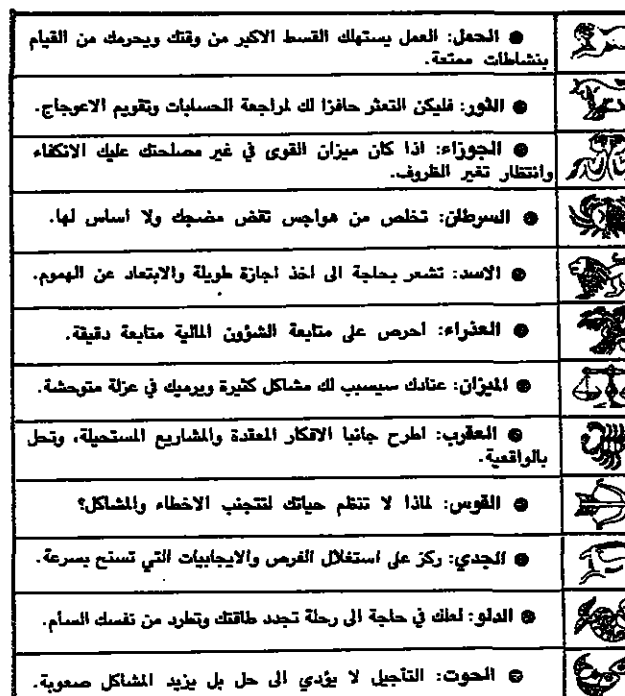 ● الحمل: العمل يستهلك القسط الاكبر من وقتك ويحرمك من القيام
بنشاطات ممتعة.
● الثور: فليكن التعثر حافزا لك لمراجعة الحسابات وتقويم الاعوجاج.
● الجوزاء: اذا كان ميزان القوى في غير مصلحتك عليك الانكفاء
وانتظار تغير الظروف.
● السرطان: تخلص من هواجس تقض مضجك ولا اساس لها.
● الاسد: تشعر بحاجة الى اخذ اجازة طويلة والابتعاد عن الهموم.
● العذراء: احرص على متابعة الشؤون المالية متابعة دقيقة.
● الميزان: عنادك سيسبب لك مشاكل كثيرة ويرميك في عزلة متوحشة.
● العقرب: اطرح جانبا الافكار المعقدة والمشاريع المستحيلة، وتحل
بالواقعية.
● القوس: لماذا لا تنظم حياتك لتتجنب الاخطاء والمشاكل؟
● الجدي: ركز على استغلال الفرص والايجابيات التي تسنح بسرعة.
● الدلو: لعلك في حاجة الى رحلة تجدد طاقتك وتطرد من نفسك السأم.
● الحوت: التأجيل لا يؤدي الى حل بل يزيد المشاكل صعوبة.